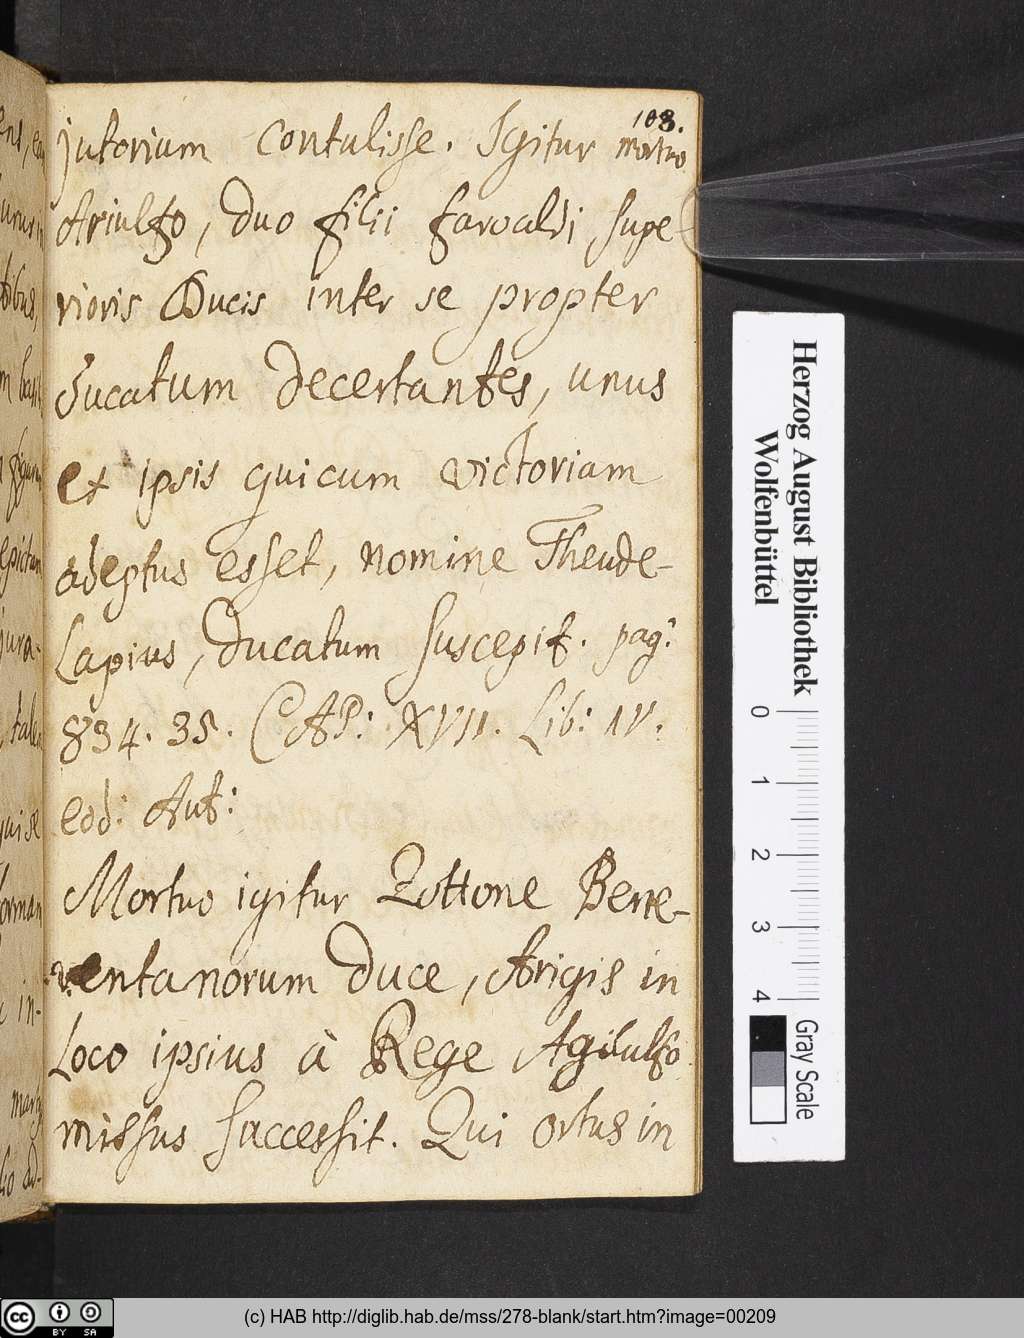 103.
jutorium contulisse. Igitur mortuo
Ariulfo, duo filii farvaldi supe-
rioris Ducis inter se propter
ducatum decertantes, unus
ex ipsis qui cum victoriam
adeptus esset, nomine Theude-
Lapius, ducatum suscepit. pag:
834. 35. CAP: XVII. Lib: IV.
eod: Aut:
Mortuo igitur Zottone Bene-
ventanorum duce, Arigis in
Loco ipsius à Rege Agilulfo
missus successit. Qui ortus in
Herzog August Bibliothek
Wolfenbüttel
0 1 2 3 4
Gray Scale
cc BY SA
(c) HAB http://diglib.hab.de/mss/278-blank/start.htm?image=00209